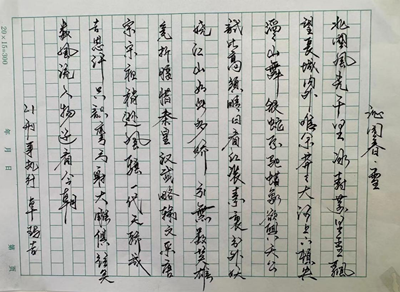 沁园春·雪
北國風光千里冰封万里雪飘
望長城内外惟余莽莽大河上下頓失
滔滔山舞银蛇原驰蜡象欲與天公
試比高須晴日看红装素裹分外妖
娆江山如此多娇引無数英雄
竞折腰惜秦皇汉武略输文采唐
宗宋祖稍逊风骚一代天骄成
吉思汗只識弯弓射大雕俱往矣
数風流人物还看今朝
21刑事执行
20×15=300
年 月 日
第 页